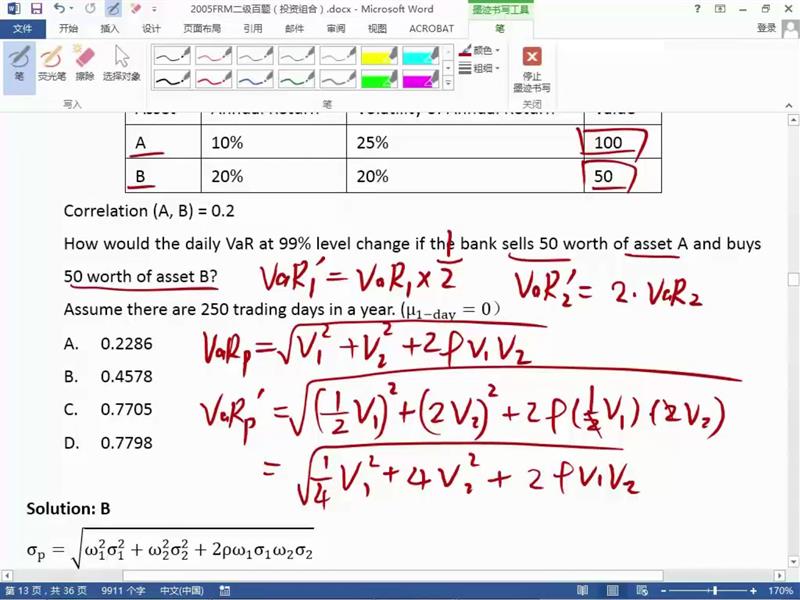 2005FRM二级百题（投资组合）.docx - Microsoft Word
墨迹书写工具
文件 开始 插入 设计 页面布局 引用 邮件 审阅 视图 ACROBAT 笔
登录
笔 荧光笔 擦除 选择对象
颜色
粗细
停止
墨迹书写
写入 笔 关闭
A 10% 25% 100
B 20% 20% 50
Correlation (A, B) = 0.2
How would the daily VaR at 99% level change if the bank sells 50 worth of asset A and buys
50 worth of asset B?
VaR₁′ = VaR₁ × 1/2 VaR₂′ = 2 · VaR₂
Assume there are 250 trading days in a year. (μ₁₋day = 0）
A. 0.2286
B. 0.4578
C. 0.7705
D. 0.7798
VaRp = √(V₁² + V₂² + 2ρV₁V₂)
VaRp′ = √((1/2 V₁)² + (2V₂)² + 2ρ(1/2 V₁)(2V₂))
= √(1/4 V₁² + 4V₂² + 2ρV₁V₂)
Solution: B
σp = √(ω₁²σ₁² + ω₂²σ₂² + 2ρω₁σ₁ω₂σ₂)
第 13 页，共 36 页 9911 个字 中文(中国) 170%